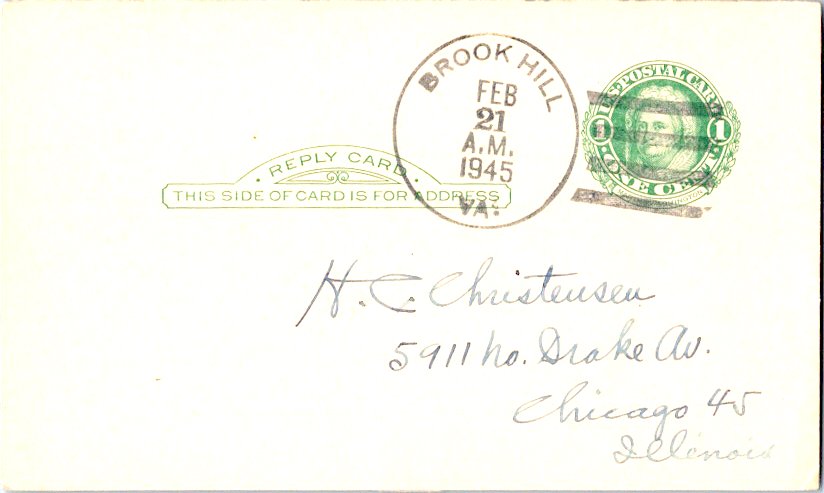 BROOK HILL
FEB
21
A.M.
1945
VA.
U.S. POSTAL CARD
1 1
ONE CENT
REPLY CARD
THIS SIDE OF CARD IS FOR ADDRESS
H. C. Christensen
5911 No. Drake Av.
Chicago 45
Illinois